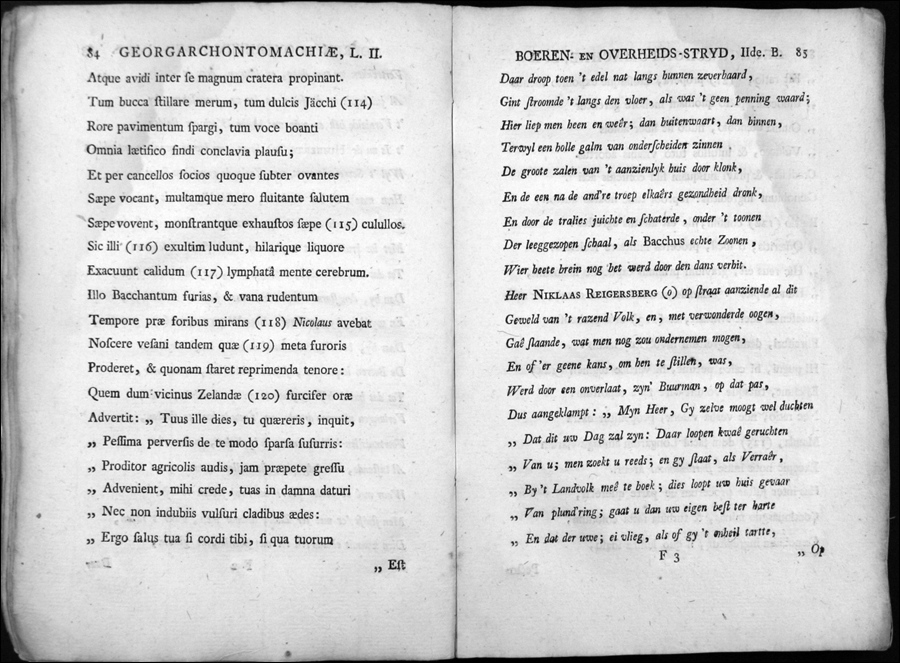 84 GEORGARCHONTOMACHIÆ, L. II.
Atque avidi inter ſe magnum cratera propinant.
Tum bucca ſtillare merum, tum dulcis Jäcchi (114)
Rore pavimentum ſpargi, tum voce boanti
Omnia lætifico findi conclavia plauſu;
Et per cancellos ſocios quoque ſubter ovantes
Sæpe vocant, multamque mero fluitante ſalutem
Sæpe vovent, monſtrantque exhauſtos ſæpe (115) culullos.
Sic illi (116) exultim ludunt, hilarique liquore
Exacuunt calidum (117) lymphatâ mente cerebrum.
Illo Bacchantum furias, & vana rudentum
Tempore præ foribus mirans (118) Nicolaus avebat
Noſcere veſani tandem quæ (119) meta furoris
Proderet, & quonam ſtaret reprimenda tenore:
Quem dum vicinus Zelandæ (120) furcifer oræ
Advertit: „ Tuus ille dies, tu quæreris, inquit,
„ Peſſima perverſis de te modo ſparſa ſuſurris:
„ Proditor agricolis audis, jam præpete greſſu
„ Advenient, mihi crede, tuas in damna daturi
„ Nec non indubiis vulſuri cladibus ædes:
„ Ergo ſalus tua ſi cordi tibi, ſi qua tuorum
„ Eſt
BOEREN- EN OVERHEIDS-STRYD, IIde. B. 85
Daar droop toen 't edel nat langs hunnen zeverbaard,
Gint ſtroomde 't langs den vloer, als was 't geen penning waard;
Hier liep men heen en weêr; dan buitenwaart, dan binnen,
Terwyl een holle galm van onderſcheiden zinnen
De groote zalen van 't aanzienlyk huis door klonk,
En de een na de and're troep elkaêrs gezondheid dronk,
En door de tralies juichte en ſchaterde, onder 't toonen
Der leeggezopen ſchaal, als Bacchus echte Zoonen,
Wier heete brein nog het werd door den dans verhit.
Heer NIKLAAS REIGERSBERG (o) op ſtraat aanziende al dit
Geweld van 't razend Volk, en, met verwonderde oogen,
Gaê ſlaande, wat men nog zou ondernemen mogen,
En of 'er geene kans, om hen te ſtillen, was,
Werd door een onverlaat, zyn' Buurman, op dat pas,
Dus aangeklampt: „ Myn Heer, Gy zelve moogt wel duchten
„ Dat dit uw Dag zal zyn: Daar loopen kwaê geruchten
„ Van u; men zoekt u reeds; en gy ſlaat, als Verraêr,
„ By 't Landvolk meê te boek; dies loopt uw huis gevaar
„ Van plund'ring; gaat u dan uw eigen beſt ter harte
„ En dat der uwe; ei vlieg, als of gy 't onheil tartte,
F 3
„ Op